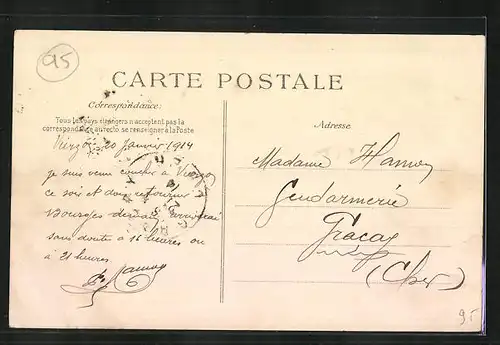 95
CARTE POSTALE
Correspondance:
Tous les pays étrangers n'acceptent pas la
correspondance au recto se renseigner à la Poste
20 Janvier 1914
je suis venu coucher à
ce soir et dois retourner
Bourges demain
sans doute à 16 heures ou
à 21 heures
Adresse
Madame
Gendarmerie
Graçay
(Cher)
95